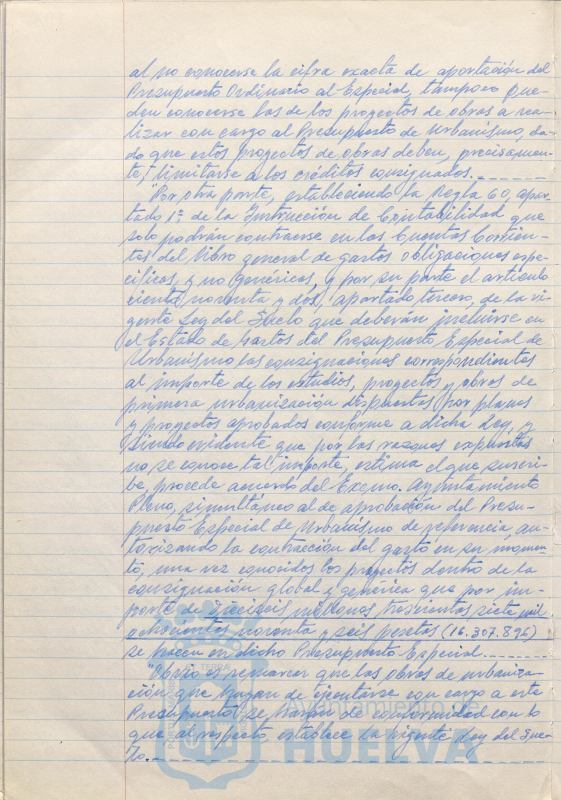 al no conocerse la cifra exacta de aportación del
Presupuesto Ordinario al Especial, tampoco pue-
den conocerse las de los proyectos de obras a rea-
lizar con cargo al Presupuesto de Urbanismo, da-
do que estos proyectos de obras deben, precisamen-
te, limitarse a los créditos consignados.
"Por otra parte, estableciendo la Regla 60, apar-
tado 1º de la Instrucción de Contabilidad que
solo podrán contraerse en las Cuentas Corrien-
tes del Libro general de gastos obligaciones espe-
cíficas, y no genéricas, y por su parte el artículo
ciento noventa y dos, apartado tercero, de la vi-
gente Ley del Suelo que deberán incluirse en
el Estado de Gastos del Presupuesto Especial de
Urbanismo las consignaciones correspondientes
al importe de los estudios, proyectos y obras de
primera urbanización dispuestas por planes
y proyectos aprobados conforme a dicha Ley, y
siendo evidente que por las razones expuestas
no se conoce tal importe, estima el que suscri-
be, procede acuerdo del Excmo. Ayuntamiento
Pleno, simultáneo al de aprobación del Presu-
puesto Especial de Urbanismo de referencia, au-
torizando la contracción del gasto en su momen-
to, una vez conocidos los proyectos dentro de la
consignación global y genérica que por im-
porte de dieciseis millones trescientas siete mil
ochocientas noventa y seis pesetas (16.307.896)
se hacen en dicho Presupuesto Especial.
"Obvio es remarcar que las obras de urbaniza-
ción que hayan de ejecutarse con cargo a este
Presupuesto se harán de conformidad con lo
que al respecto establece la vigente Ley del Sue-
lo.
Ayuntamiento de
HUELVA